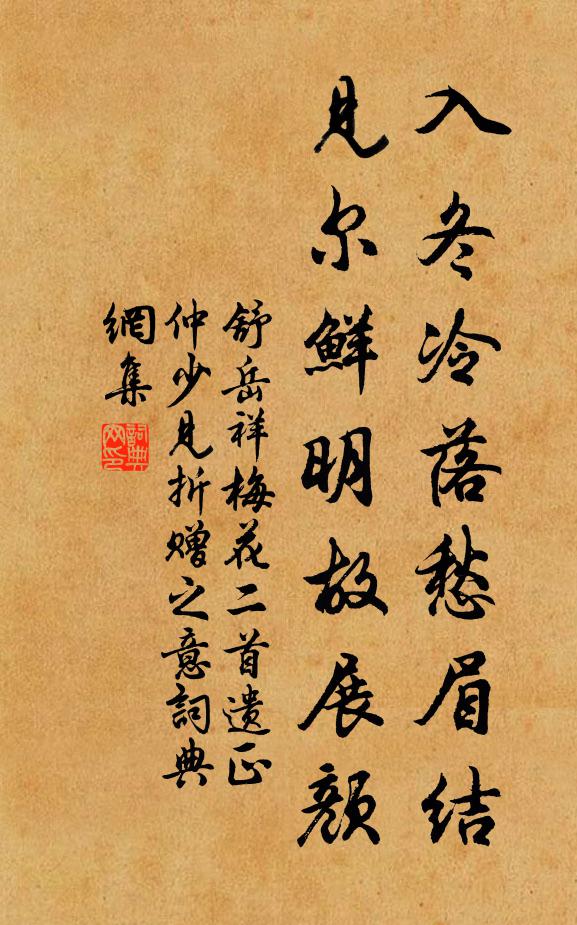 入冬冷落愁眉结
见尔鲜明故展颜
舒岳祥梅花二首遗正
仲少见折赠之意詞典
網集
詞典
网印